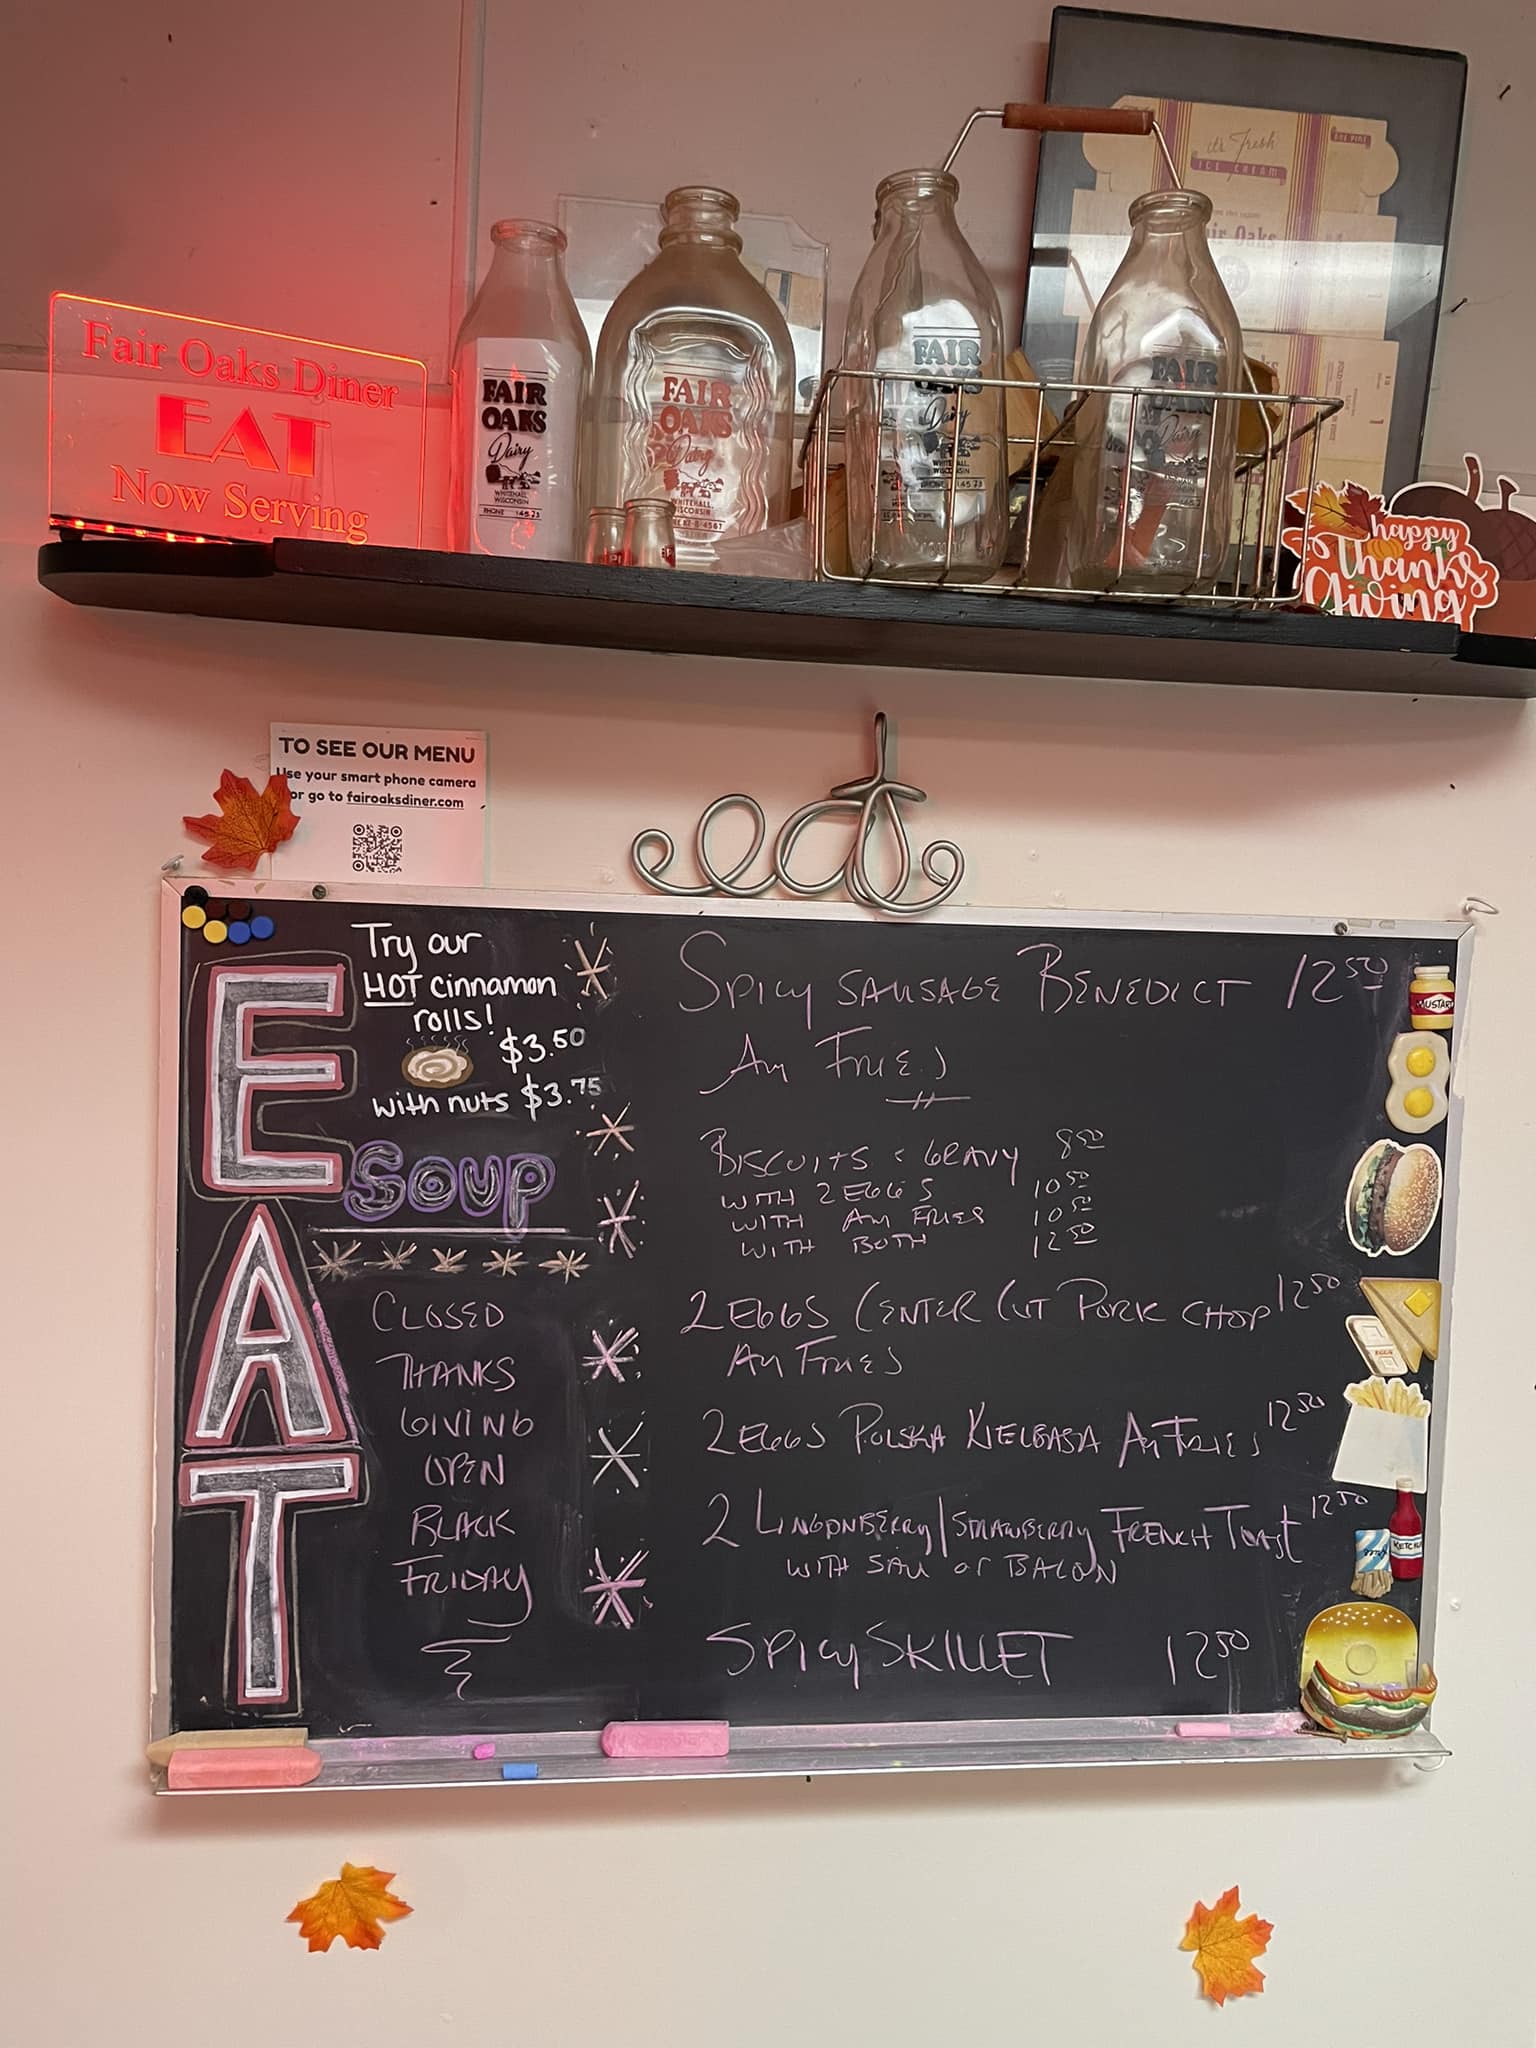 it's Fresh
ICE CREAM
air Oaks
Fair Oaks Diner
EAT
Now Serving
FAIR
OAKS
Dairy
WHITEHALL
WISCONSIN
PHONE 145
FAIR
OAKS
Dairy
WHITEHALL
WISCONSIN
FAIR
OAKS
Dairy
WHITEHALL
WISCONSIN
PHONE
FAIR
Dairy
happy
Thanks
Giving
TO SEE OUR MENU
Use your smart phone camera
or go to fairoaksdiner.com
eat
EAT
Try our
HOT cinnamon
rolls!
$3.50
with nuts $3.75
Soup
CLOSED
THANKS
GIVING
OPEN
BLACK
FRIDAY
SPICY SAUSAGE BENEDICT 12 50
AM FRIES
BISCUITS & GRAVY 8 50
WITH 2 EGGS 10 50
WITH AM FRIES 10 50
WITH BOTH 12 50
2 EGGS CENTER CUT PORK CHOP 12 50
AM FRIES
2 EGGS POLSKA KIELBASA AM FRIES 12 50
2 LINGONBERRY/STRAWBERRY FRENCH TOAST 12 50
WITH SAU or BACON
SPICY SKILLET 12 50
MUSTARD
KETCHUP